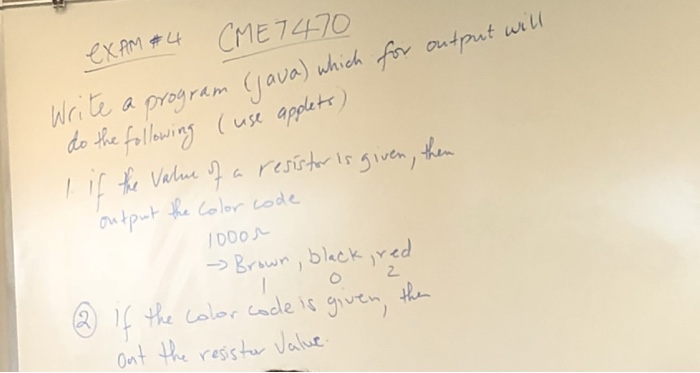 EXAM #4 CME7470
Write a program (java) which for output will
do the following (use applets)
1. if the value of a resistor is given, then
output the color code
1000Ω
→ Brown, black, red
1 0 2
② if the color code is given, then
out the resistor value.